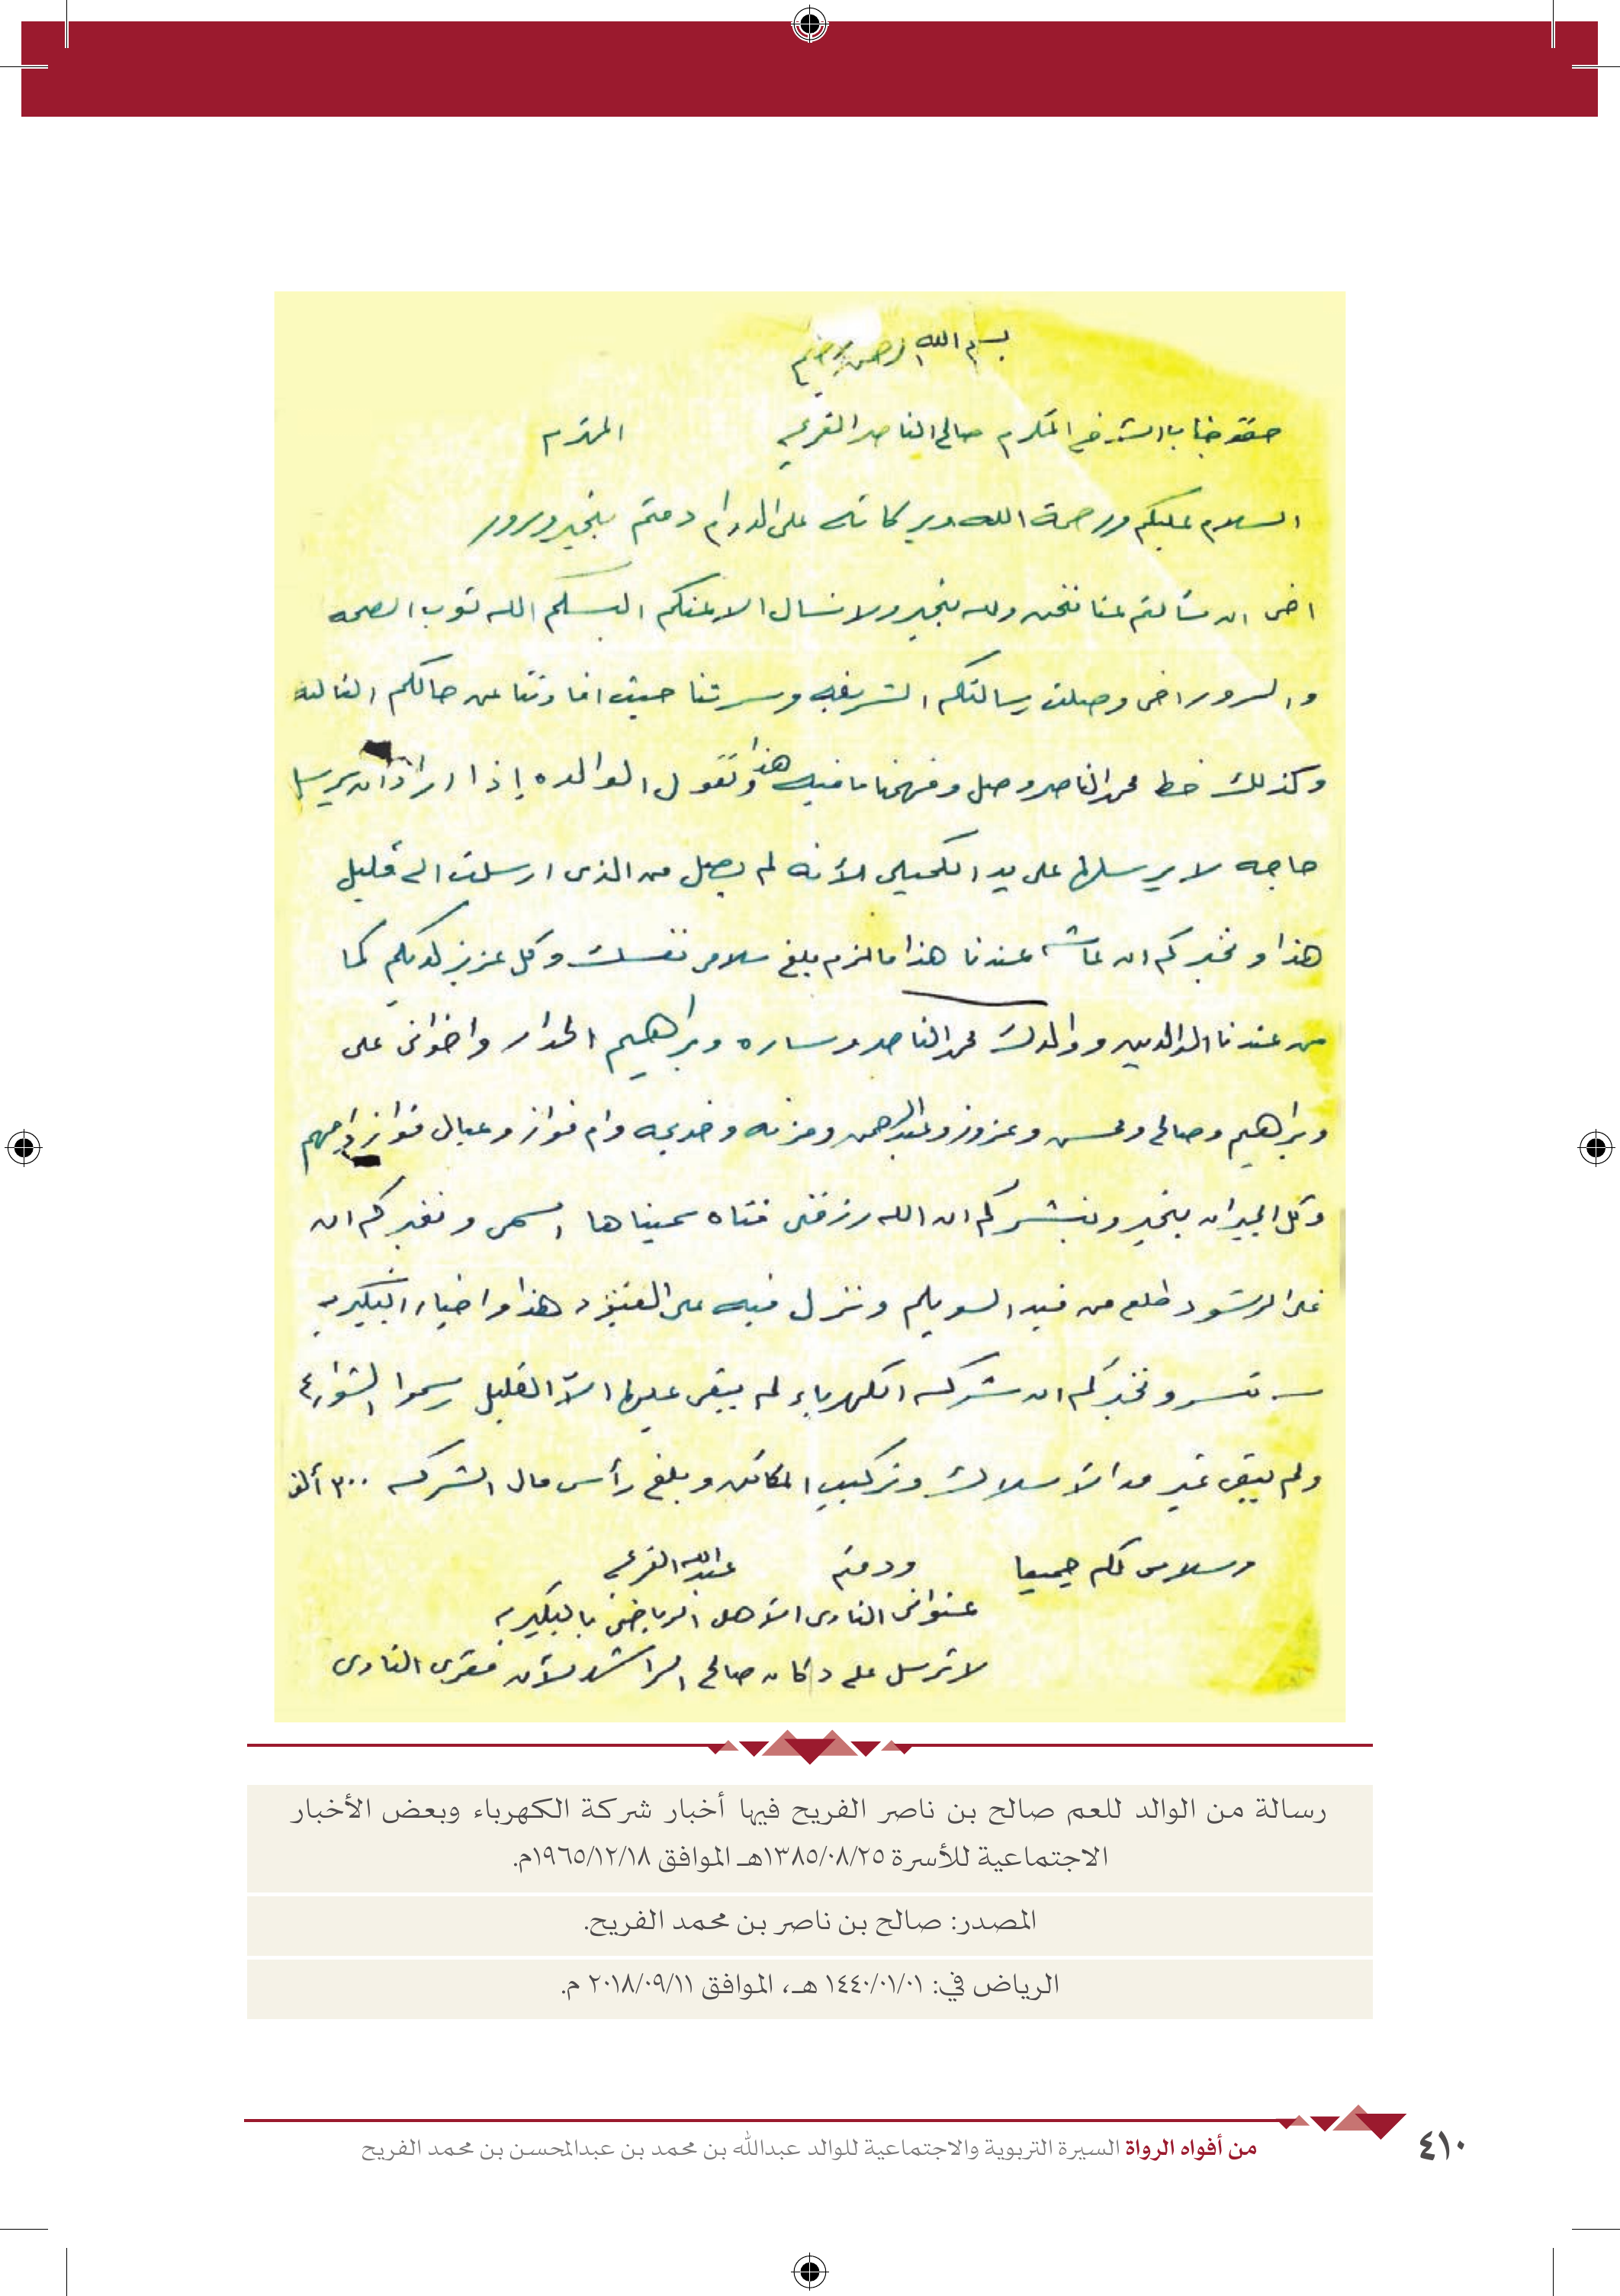 بسم الله الرحمن الرحيم
حضرة جناب الشرف المكرم صالح الناصر الفريح المحترم
السلام عليكم ورحمة الله وبركاته على الدوام دمتم بخير وسرور
اخي ان سألتم عنا نحن ولله بخير ولا نسال الا عنكم البسكم الله ثوب الصحه
والسرور اخي وصلت رسالتكم الشريفه وسرتنا حيث افادتنا عن حالكم الغاليه
وكذلك خط محمد الناصر وصل وفهمنا ما فيه هذا وتقول الوالده إذا اراد ان يرسل
حاجه لا يرسلها على يد الكميلي لأنه لم يصل من الذي ارسلت الي قليل
هذا ونخبركم ان عندنا هذا مالزم بلغ سلامي نفسك وكل عزيز لديكم كما
من عندنا الوالدين ووالدك محمد الناصر وساره وبراهيم الجدار واخواني علي
وبراهيم وصالح ومحسن وعزوز وعبدالرحمن ومزنه وخديجه وام فواز وعيال فواز وامهم
وكل الجيران بخير ونبشركم ان الله رزقني فتاه سميناها اسمى ونخبركم ان
علي الرشود طلع من فيد السويلم ونزل فيه على هذا واخبار البكيريه
تسر ونخبركم ان شركه الكهرباء لم يبقى عليها الا القليل رسموا الشوارع
ولم يبقى غير مد الأسلاك وتركيب المكائن وبلغ رأس مال الشركه ٣٠٠ ألف
وسلامي لكم جميعا ودمتم عبدالله الفريح
عنواني النادي الأهلي الرياضي بالبكيريه
لا ترسل على دكان صالح الراشد لأن مقري النادي
رسالة من الوالد للعم صالح بن ناصر الفريح فيها أخبار شركة الكهرباء وبعض الأخبار
الاجتماعية للأسرة ١٣٨٥/٠٨/٢٥هـ الموافق ١٩٦٥/١٢/١٨م.
المصدر: صالح بن ناصر بن محمد الفريح.
الرياض في: ١٤٤٠/٠١/٠١ هـ، الموافق ٢٠١٨/٠٩/١١ م.
من أفواه الرواة السيرة التربوية والاجتماعية للوالد عبدالله بن محمد بن عبدالمحسن بن محمد الفريح
٤١٠